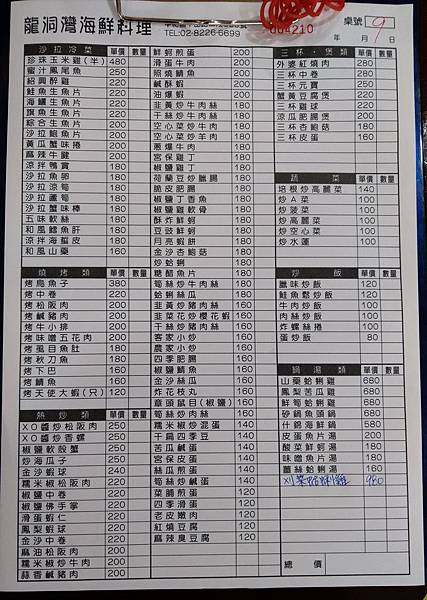 龍洞灣海鮮料理
TEL:02-8226-6699
004210
桌號 9
年 月 日
沙拉冷菜 單價 數量
珍珠玉米雞(半) 480
蜜汁鳳尾魚 250
紹興醉雞 220
鮭魚生魚片 220
海鱺生魚片 220
旗魚生魚片 220
綜合生魚片 220
沙拉鮑魚片 200
黃瓜蟹味捲 200
麻辣牛腱 200
涼拌鴨賞 180
沙拉魚卵 180
沙拉涼筍 180
沙拉蘆筍 180
沙拉蟹味棒 180
五味軟絲 180
和風鱈魚肝 180
涼拌海蜇皮 180
和風山藥 160
燒烤類 單價 數量
烤烏魚子 380
烤中卷 220
烤松阪肉 200
烤鹹豬肉 200
烤牛小排 200
烤味噌五花肉 200
烤虱目魚肚 180
烤秋刀魚 180
烤下巴 160
烤鯖魚 160
烤天使大蝦(只) 120
熱炒類 單價 數量
XO醬炒松阪肉 250
XO醬炒香螺 250
椒鹽軟殼蟹 250
炒海瓜子 250
金沙蝦球 240
糯米椒松阪肉 220
椒鹽中卷 220
椒鹽佛手掌 220
滑蛋蝦仁 200
鳳梨蝦球 220
金沙中卷 220
麻油松阪肉 200
糯米椒炒牛肉 200
蒜香鹹豬肉 200
鮮蚵煎蛋 200
滑蛋牛肉 200
照燒鯖魚 200
鹹酥蝦 200
油爆蝦 200
韭黃炒牛肉絲 180
干絲炒牛肉絲 180
空心菜炒牛肉 180
空心菜炒羊肉 180
蔥爆牛肉 180
宮保雞丁 180
椒鹽雞丁 180
荷蘭豆炒臘腸 180
脆皮肥腸 180
椒鹽丁香魚 180
椒鹽雞軟骨 180
酥炸鮮蚵 180
豆豉鮮蚵 180
月亮蝦餅 180
金沙杏鮑菇 180
炒蛤蜊 180
糖醋魚片 180
筍絲炒牛肉絲 180
蛤蜊絲瓜 180
韭黃炒豬肉絲 160
韭菜花炒櫻花蝦 160
干絲炒豬肉絲 160
客家小炒 160
農家小炒 160
四季肥腸 160
椒鹽鯖魚 160
金沙絲瓜 160
炸花枝丸 160
章頭鼠目(椒鹽) 160
筍絲炒肉絲 160
糯米椒炒混蛋 140
干扁四季豆 140
苦瓜鹹蛋 140
宮保皮蛋 140
絲瓜煎蛋 140
筍絲炒鹹蛋 140
菜脯煎蛋 120
四季滑蛋 120
老皮嫩肉 120
紅燒豆腐 120
麻辣臭豆腐 120
三杯、煲類 單價 數量
外婆紅燒肉 280
三杯中卷 280
三杯元寶 250
蟹黃豆腐煲 220
三杯雞球 220
涼瓜肥腸煲 200
三杯杏鮑菇 180
三杯皮蛋 160
蔬菜 單價 數量
培根炒高麗菜 140
炒A菜 100
炒菠菜 100
炒高麗菜 100
炒空心菜 100
炒水蓮 100
炒飯 單價 數量
臘味炒飯 120
鮭魚鬆炒飯 120
牛肉炒飯 100
肉絲炒飯 100
炸螺絲捲 100
蛋炒飯 80
鍋湯類 單價 數量
山藥蛤蜊雞 680
鳳梨苦瓜雞 680
鮮筍蛤蜊雞 680
砂鍋魚頭鍋 680
什錦海鮮鍋 580
皮蛋魚片湯 200
酸菜鮮蚵湯 180
味噌魚片湯 180
薑絲蛤蜊湯 160
980
總價